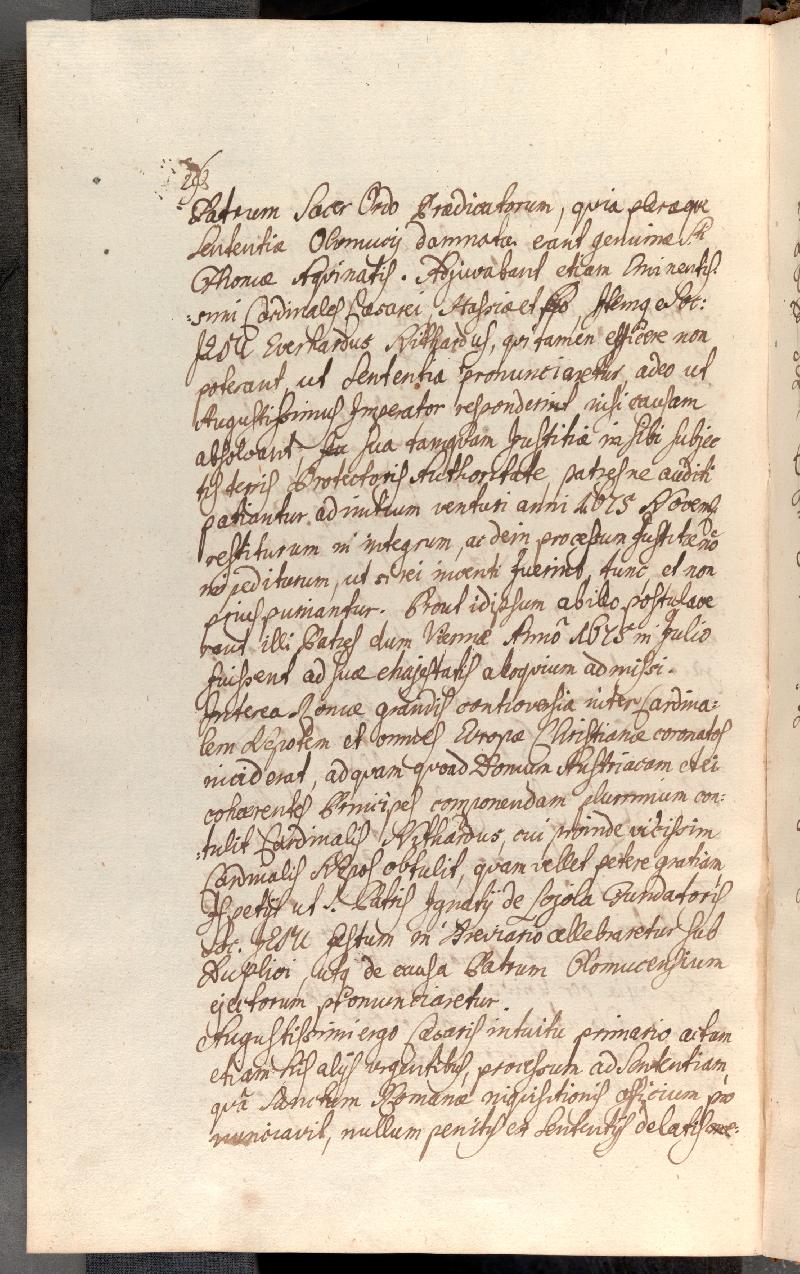 Patrum Sacer Ordo Prædicatorum, quia pleræque
Sententiæ Olomucij damnatæ erant genuinæ S.ti
Thomæ Aqvinatis. Adjuvabant etiam Eminentis:
:simi Cardinales Cæsarei, Hassiæ et Pio, Itemq Soc:
JESU Everhardus Nithardus, qvi tamen efficere non
poterant, ut Sententia pronunciaretur, adeo ut
Augustissimus Imperator responderint nisi causam
absolvant Se sua tamqvam Justitiæ in sibi subjec
tis terris Protectoris Authoritate, patres ne auditi
patiantur ad initium venturi anni 1675 Novem
restiturum in integrum, ac dein processum Justitiæ nō
impediturum, ut si rei inventi fuerint, tunc, et non
prius puniantur. Prout id ipsum ab illo postulave
rant illi Patres dum Viennæ Annō 1675 in Julio
fuissent ad suæ Majestatis aloqvium admissi.
Interea Romæ grandis controversia inter Cardina:
lem Nepotem et omnes Europæ Christianæ coronatos
inciderat, ad qvam qvoad Domum Austriacam et ei
cohærentes Principes componendam plurimum con:
:tulit Cardinalis Nithardus, cui proinde vicissim
Cardinalis Nepos obtulit, qvam vellet petere gratiam
Is petijt ut S. Patris Ignatij de Lojola Fundatoris
Soc. JESU festum in Breviario cellebraretur sub
Duplici, utq de causa Patrum Olomucensium
ejectorum pronunciaretur.
Augustissimi ergo Cæsaris intuitu primario actum
etiam his alijs urgentibus, processum ad Sententiam,
qvā Sanctum Romanæ inqvisitionis officium pro
nunciavit, nullum penitus ex Sententijs delatis